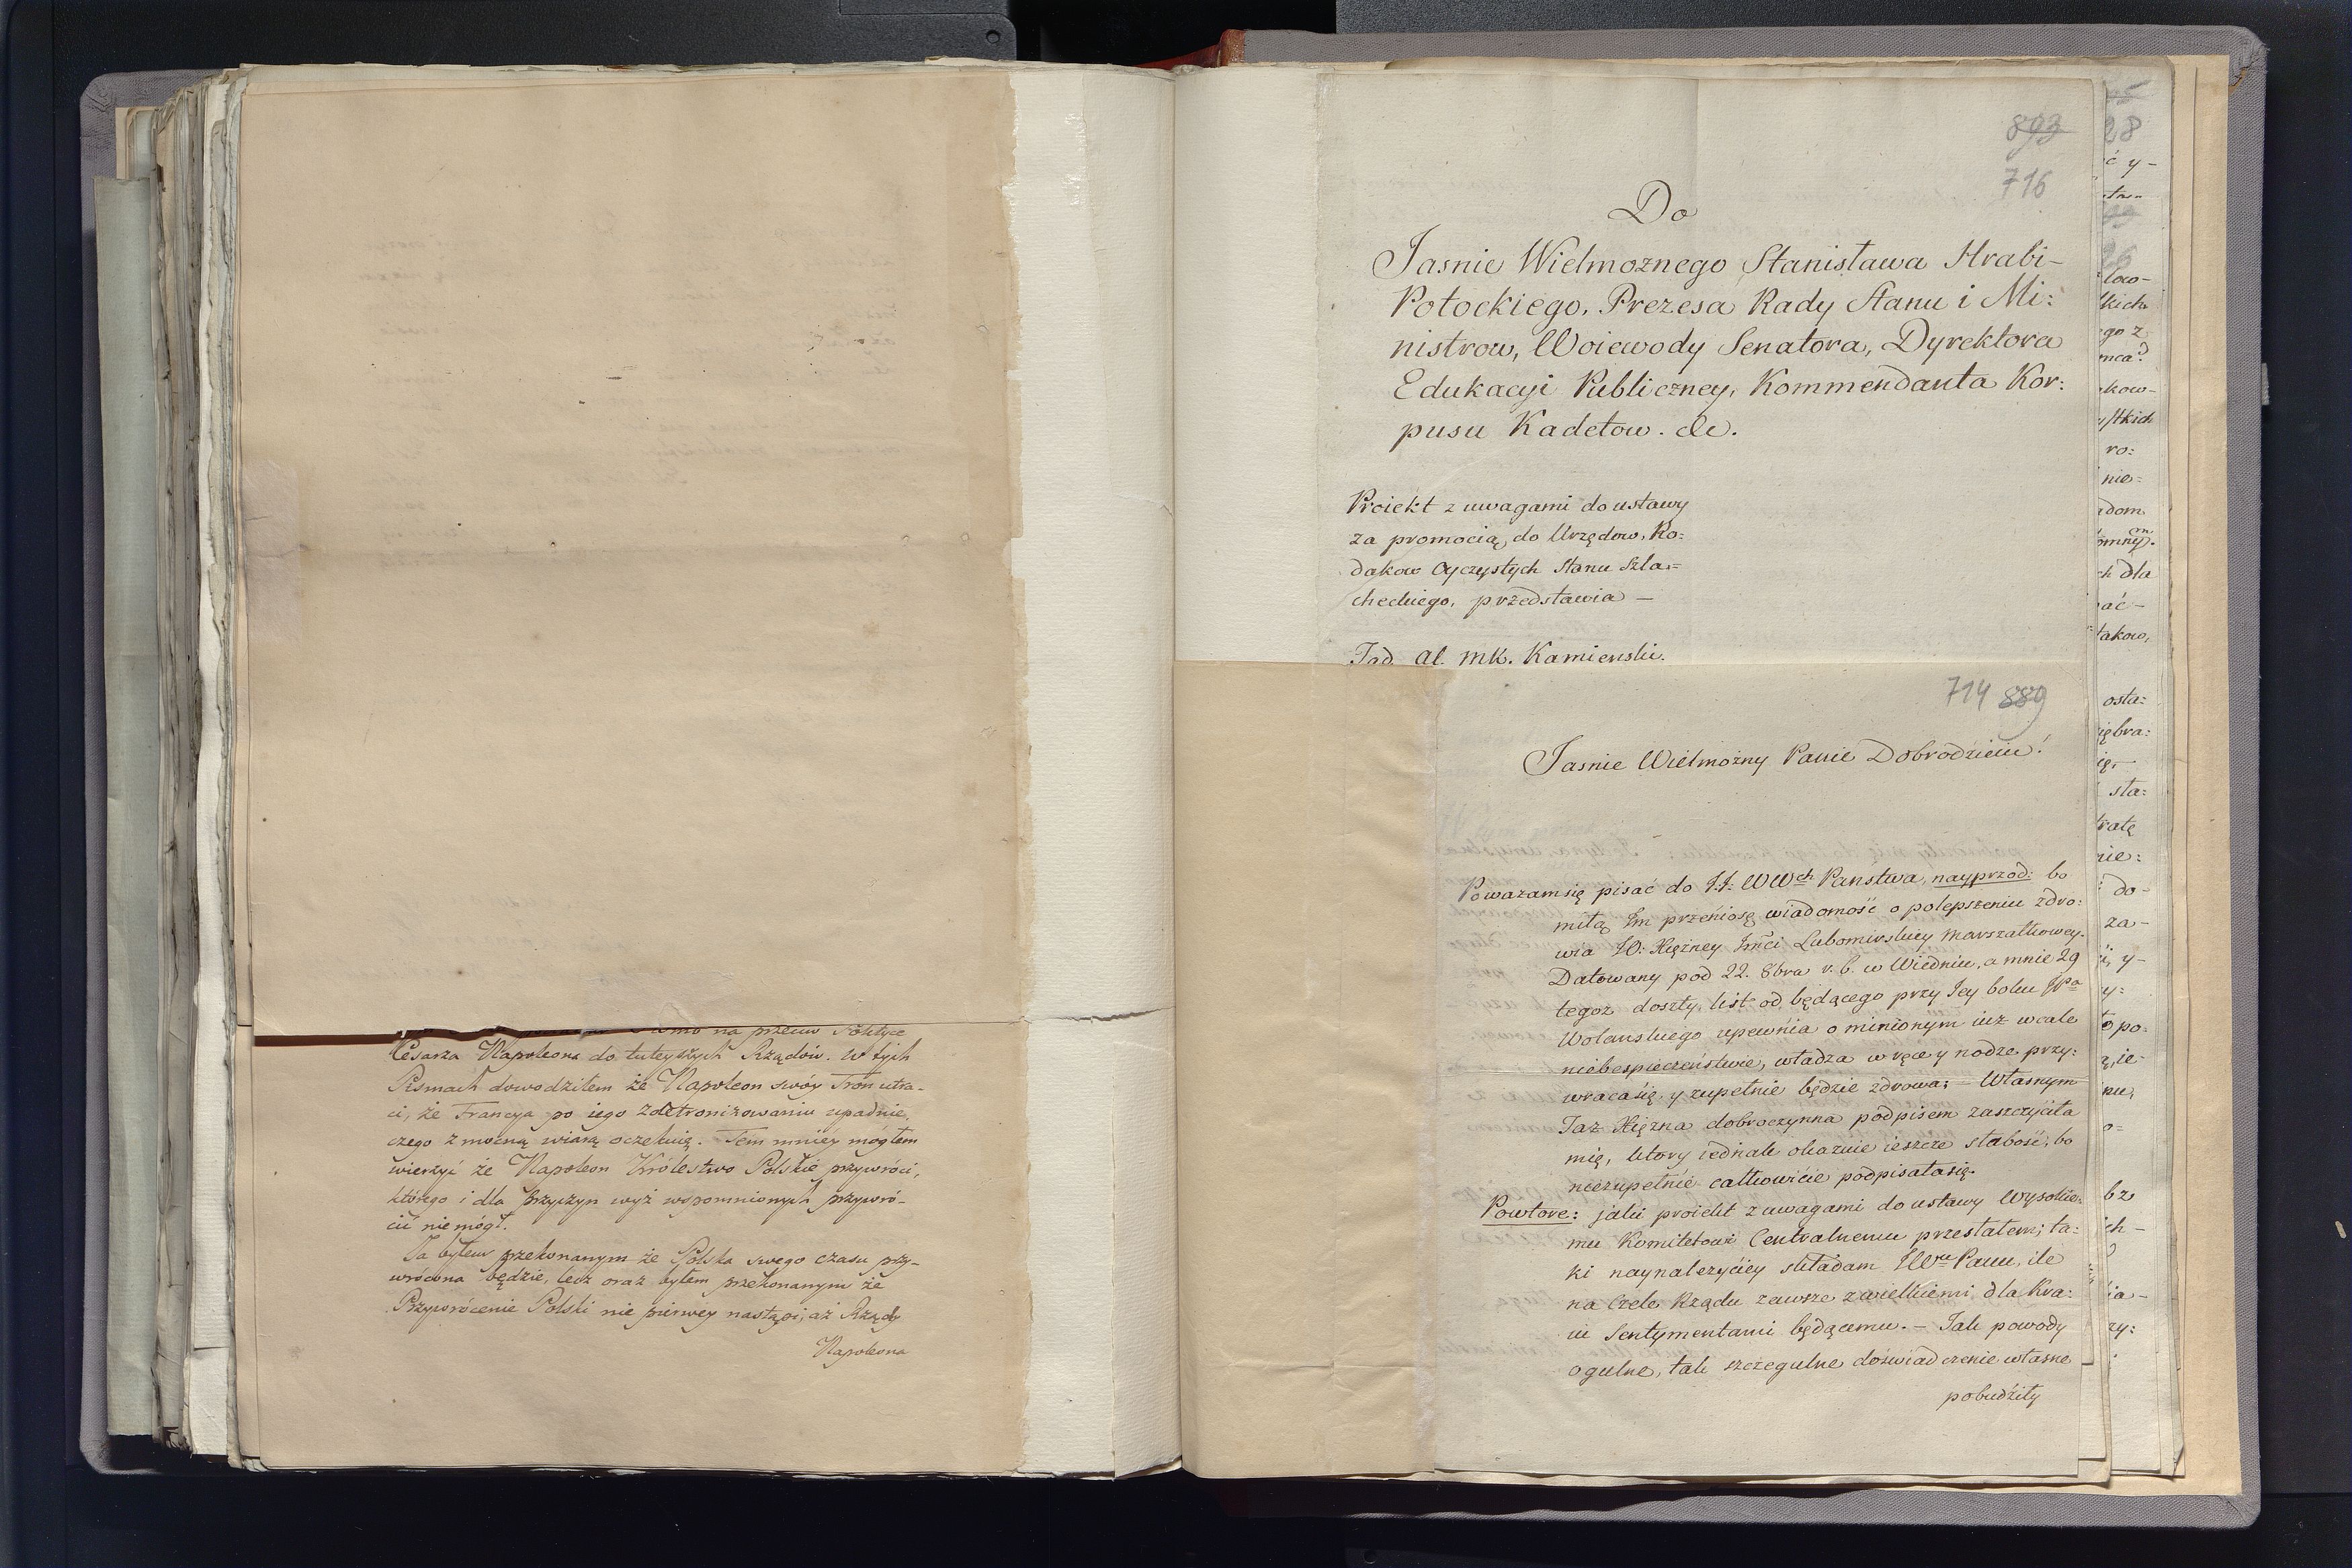 na przeciw Polityce
Cesarza Napoleona do tuteyszych Rządów. W tych
Pismach dowodziłem że Napoleon swóy Tron utra-
ci, że Francya po iego zdetronizowaniu upadnie,
czego z mocną wiarą oczekuię. Tem mniéy mógłem
wierzyć że Napoleon Królestwo Polskie przywróci,
którego i dla przyczyn wyż wspomnionych przywró-
cić nie mógł.
Ja byłem przekonanym że Polska swego czasu przy-
wrócona będzie, lecz oraz byłem przekonanym że
Przywrócenie Polski nie pierwey nastąpi, aż Rządy
Napoleona
893
716
Do
Jasnie Wielmoznego Stanisława Hrabi-
Potockiego, Prezesa Rady Stanu i Mi:
nistrow, Woiewody Senatora, Dyrektora
Edukacyi Publiczney, Kommendanta Kor:
pusu Kadetow. &c.
Proiekt z uwagami do ustawy
za promocią do Urzędow, Ro=
dakow Oyczystych Stanu Szla=
checkiego, przedstawia —
Tad. Al. Mk. Kamienski.
714 889
Jasnie Wielmożny Panie Dobrodzieiu!
Poważam się pisać do J.J: WWch Panstwa, nayprzod: bo
miłą Im przeniosę wiadomość o polepszeniu zdro:
wia JO: Xiężney Jmći Lubomirskiey Marszałkowey.
Datowany pod 22. 8bra r. b. w Wiedniu, a mnie 29
tegoż doszły, list od będącego przy Jey boku JPa
Wolanskiego upewnia o minionym iuż wcale
niebespieczeństwie, władza w ręce y nodze przy:
wraca się, y zupełnie będzie zdrowa; — Własnym
Taż Xiężna dobroczynna podpisem zaszczyciła
mię, ktory iednak okazuie ieszcze słabość, bo
niezupełnie całkowicie podpisała się.
Powtore: jaki proiekt z uwagami do ustawy Wysokie:
mu Komitetowi Centralnemu przesłałem; ta:
ki naynależyciey składam JWmu Panu, ile
na Czele Rządu zawsze z wielkiemi dla Kra:
iu Sentymentami będącemu. — Jak powody
ogulne, tak szczegulne doświadczenie własne
pobudziły
28
ć y-
26
kich
go z
kow-
ro:
nie=
adom
ch dla
ać-
takow,
osta:
ię bra:
ię,
sta:
ratę
nie:
do-
za-
y-
y:
po-
ą, ie-
nu,
o=
bz
ch-
ia-
zy: